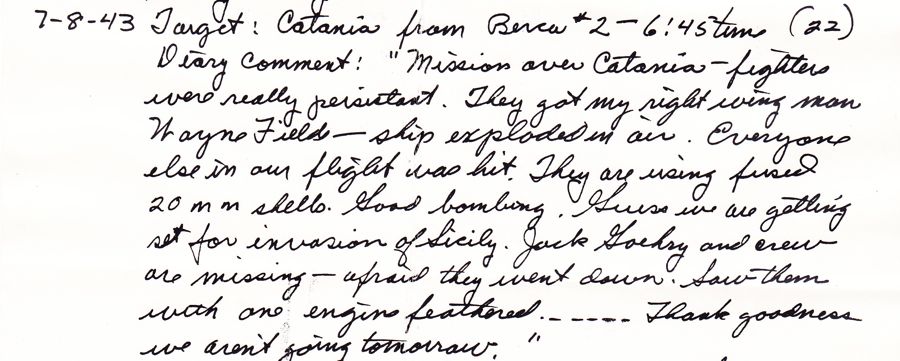 7-8-43 Target: Catania from Berca #2 - 6:45 time (22)
Diary Comment: "Mission over Catania - fighters
were really persistant. They got my right wing man
Wayne Fields - ship exploded in air. Everyone
else in our flight was hit. They are using fused
20 mm shells. Good bombing. Guess we are getting
set for invasion of Sicily. Jack and crew
are missing - afraid they went down. Saw them
with one engine feathered. ----- Thank goodness
we aren't going tomorrow."